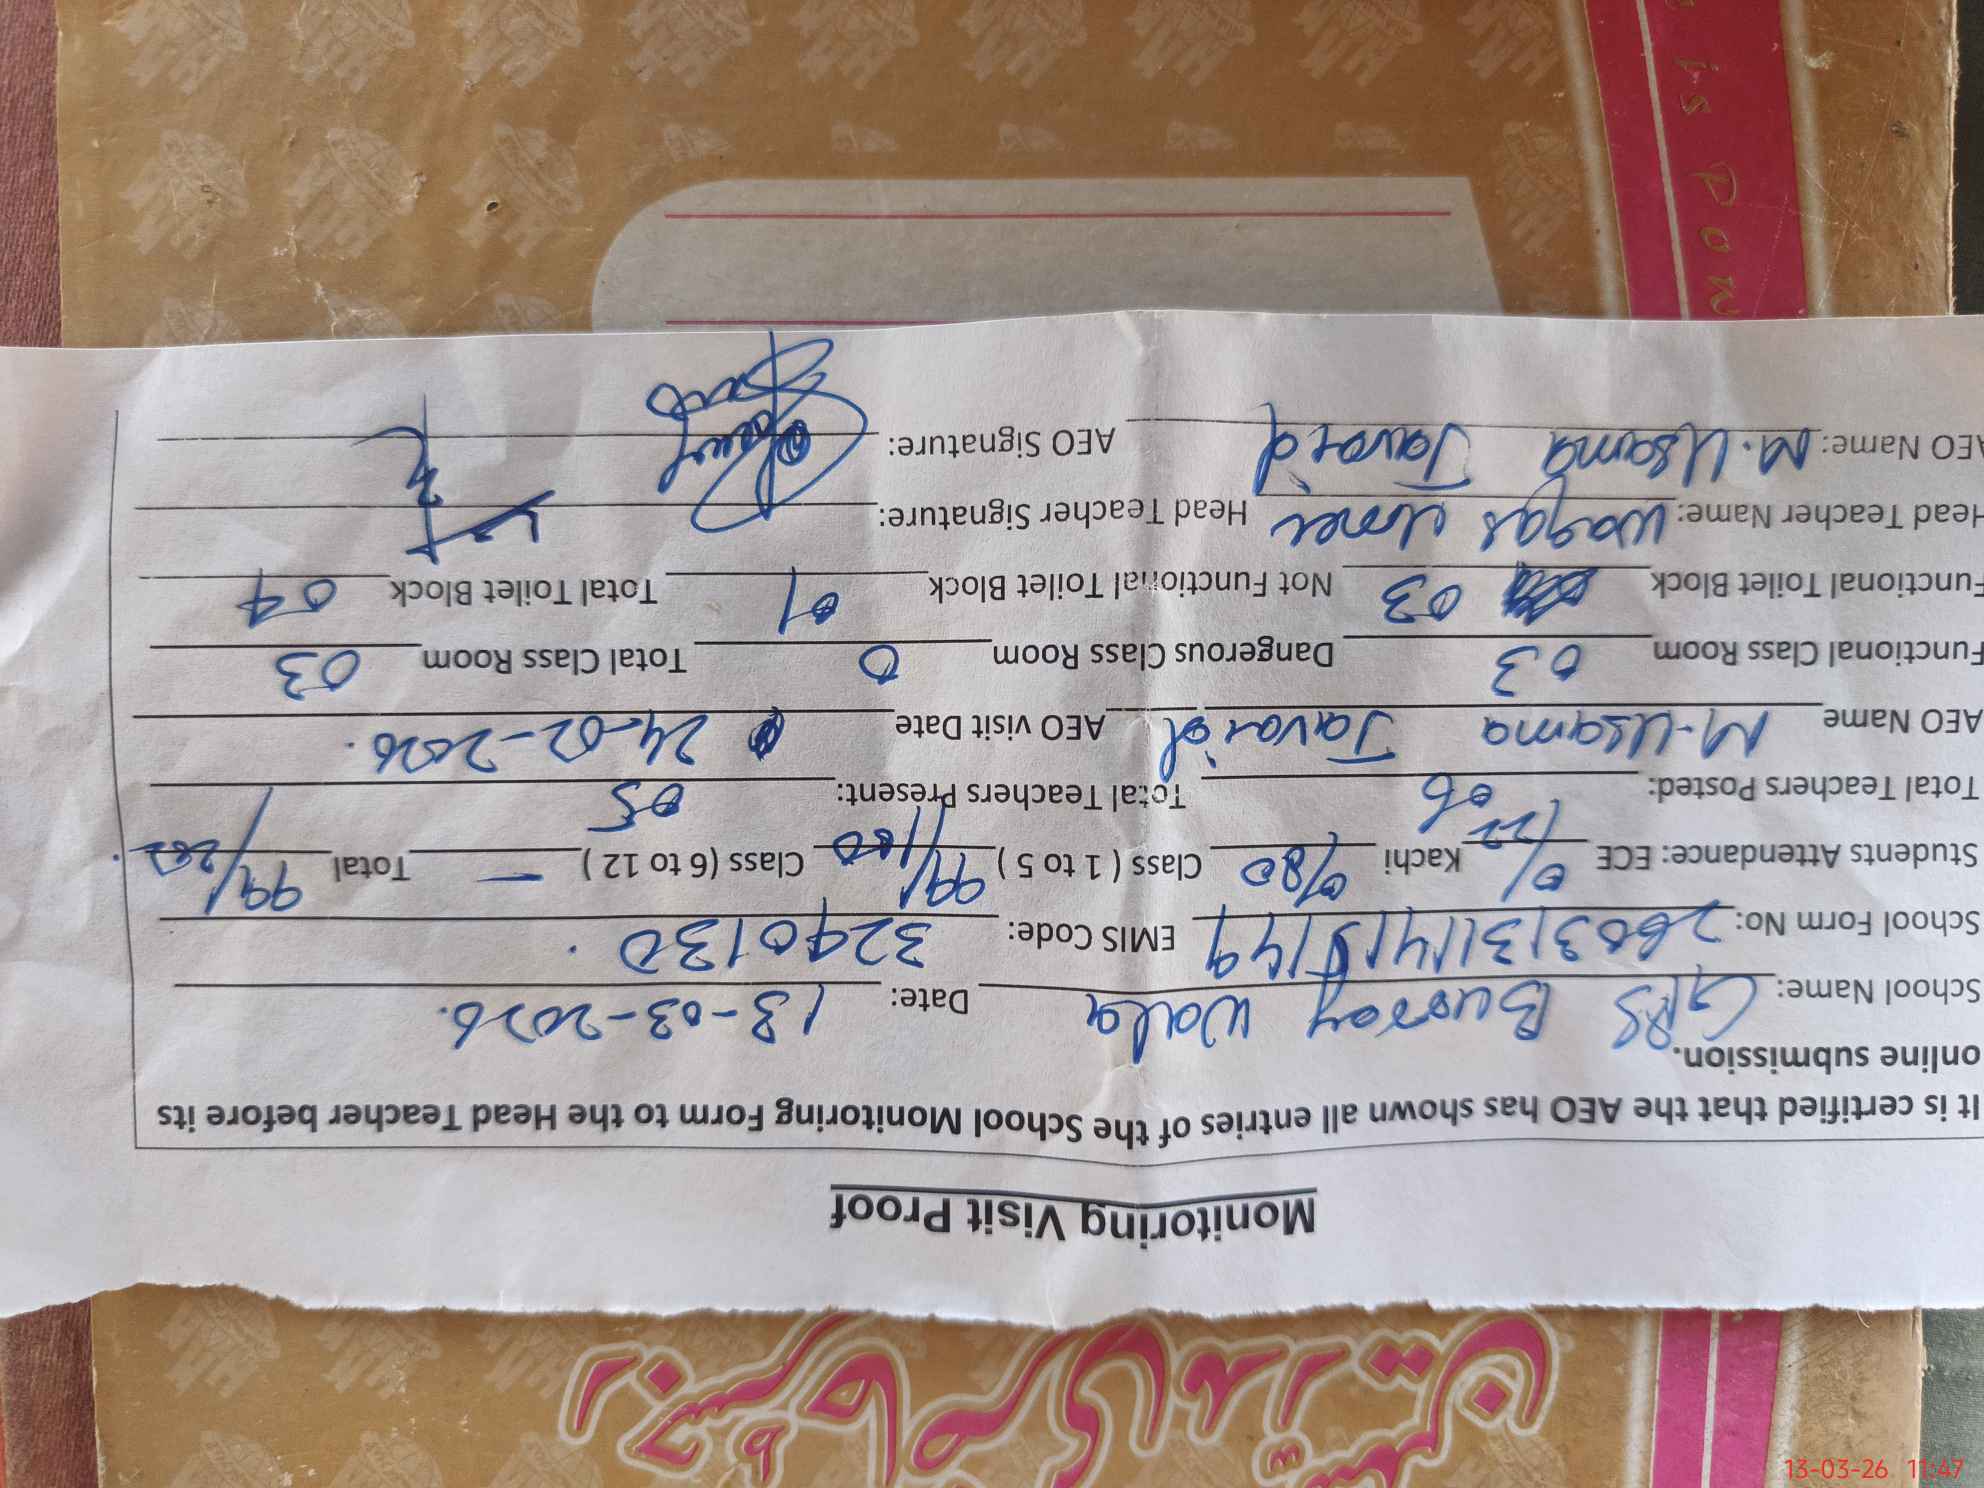 Monitoring Visit Proof
It is certified that the AEO has shown all entries of the School Monitoring Form to the Head Teacher before its
online submission.
School Name: GPS Buoray Wala Date: 13-03-2026.
School Form No: EMIS Code: 3290130.
Students Attendance: ECE 0/22 Kachi 0/80 Class ( 1 to 5 ) 99/180 Class (6 to 12 ) — Total 99/202.
Total Teachers Posted: 06 Total Teachers Present: 05
AEO Name M-Usama Javaid AEO visit Date 24-02-2026.
Functional Class Room 03 Dangerous Class Room 0 Total Class Room 03
Functional Toilet Block 03 Not Functional Toilet Block 01 Total Toilet Block 04
Head Teacher Name: Waqas Umer Head Teacher Signature:
AEO Name: M.Usama Javaid AEO Signature:
is Pon
13-03-26 11:47